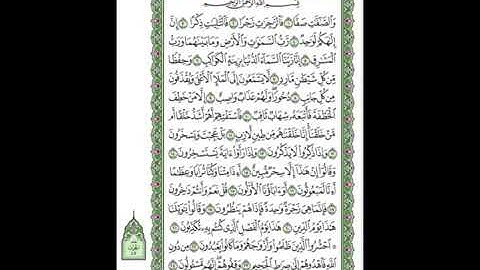 بِسْمِ ٱللَّهِ ٱلرَّحْمَٰنِ ٱلرَّحِيمِ
وَٱلصَّٰٓفَّٰتِ صَفًّا ١ فَٱلزَّٰجِرَٰتِ زَجْرًا ٢ فَٱلتَّٰلِيَٰتِ ذِكْرًا ٣ إِنَّ
إِلَٰهَكُمْ لَوَٰحِدٌ ٤ رَّبُّ ٱلسَّمَٰوَٰتِ وَٱلْأَرْضِ وَمَا بَيْنَهُمَا وَرَبُّ
ٱلْمَشَٰرِقِ ٥ إِنَّا زَيَّنَّا ٱلسَّمَآءَ ٱلدُّنْيَا بِزِينَةٍ ٱلْكَوَاكِبِ ٦ وَحِفْظًا
مِّن كُلِّ شَيْطَٰنٍ مَّارِدٍ ٧ لَّا يَسَّمَّعُونَ إِلَى ٱلْمَلَإِ ٱلْأَعْلَىٰ وَيُقْذَفُونَ
مِن كُلِّ جَانِبٍ ٨ دُحُورًا وَلَهُمْ عَذَابٌ وَاصِبٌ ٩ إِلَّا مَنْ خَطِفَ
ٱلْخَطْفَةَ فَأَتْبَعَهُۥ شِهَابٌ ثَاقِبٌ ١٠ فَٱسْتَفْتِهِمْ أَهُمْ أَشَدُّ خَلْقًا أَم
مَّنْ خَلَقْنَآ إِنَّا خَلَقْنَٰهُم مِّن طِينٍ لَّازِبٍ ١١ بَلْ عَجِبْتَ وَيَسْخَرُونَ
١٢ وَإِذَا ذُكِّرُوا۟ لَا يَذْكُرُونَ ١٣ وَإِذَا رَأَوْا۟ ءَايَةً يَسْتَسْخِرُونَ
١٤ وَقَالُوٓا۟ إِنْ هَٰذَآ إِلَّا سِحْرٌ مُّبِينٌ ١٥ أَءِذَا مِتْنَا وَكُنَّا تُرَابًا وَعِظَٰمًا
أَءِنَّا لَمَبْعُوثُونَ ١٦ أَوَءَابَآؤُنَا ٱلْأَوَّلُونَ ١٧ قُلْ نَعَمْ وَأَنتُمْ دَٰخِرُونَ
١٨ فَإِنَّمَا هِىَ زَجْرَةٌ وَٰحِدَةٌ فَإِذَا هُمْ يَنظُرُونَ ١٩ وَقَالُوا۟ يَٰوَيْلَنَا
هَٰذَا يَوْمُ ٱلدِّينِ ٢٠ هَٰذَا يَوْمُ ٱلْفَصْلِ ٱلَّذِى كُنتُم بِهِۦ تُكَذِّبُونَ
٢١ ۞ ٱحْشُرُوا۟ ٱلَّذِينَ ظَلَمُوا۟ وَأَزْوَٰجَهُمْ وَمَا كَانُوا۟ يَعْبُدُونَ ٢٢ مِن دُونِ
ٱللَّهِ فَٱهْدُوهُمْ إِلَىٰ صِرَٰطِ ٱلْجَحِيمِ ٢٣ وَقِفُوهُمْ إِنَّهُم مَّسْـُٔولُونَ ٢٤